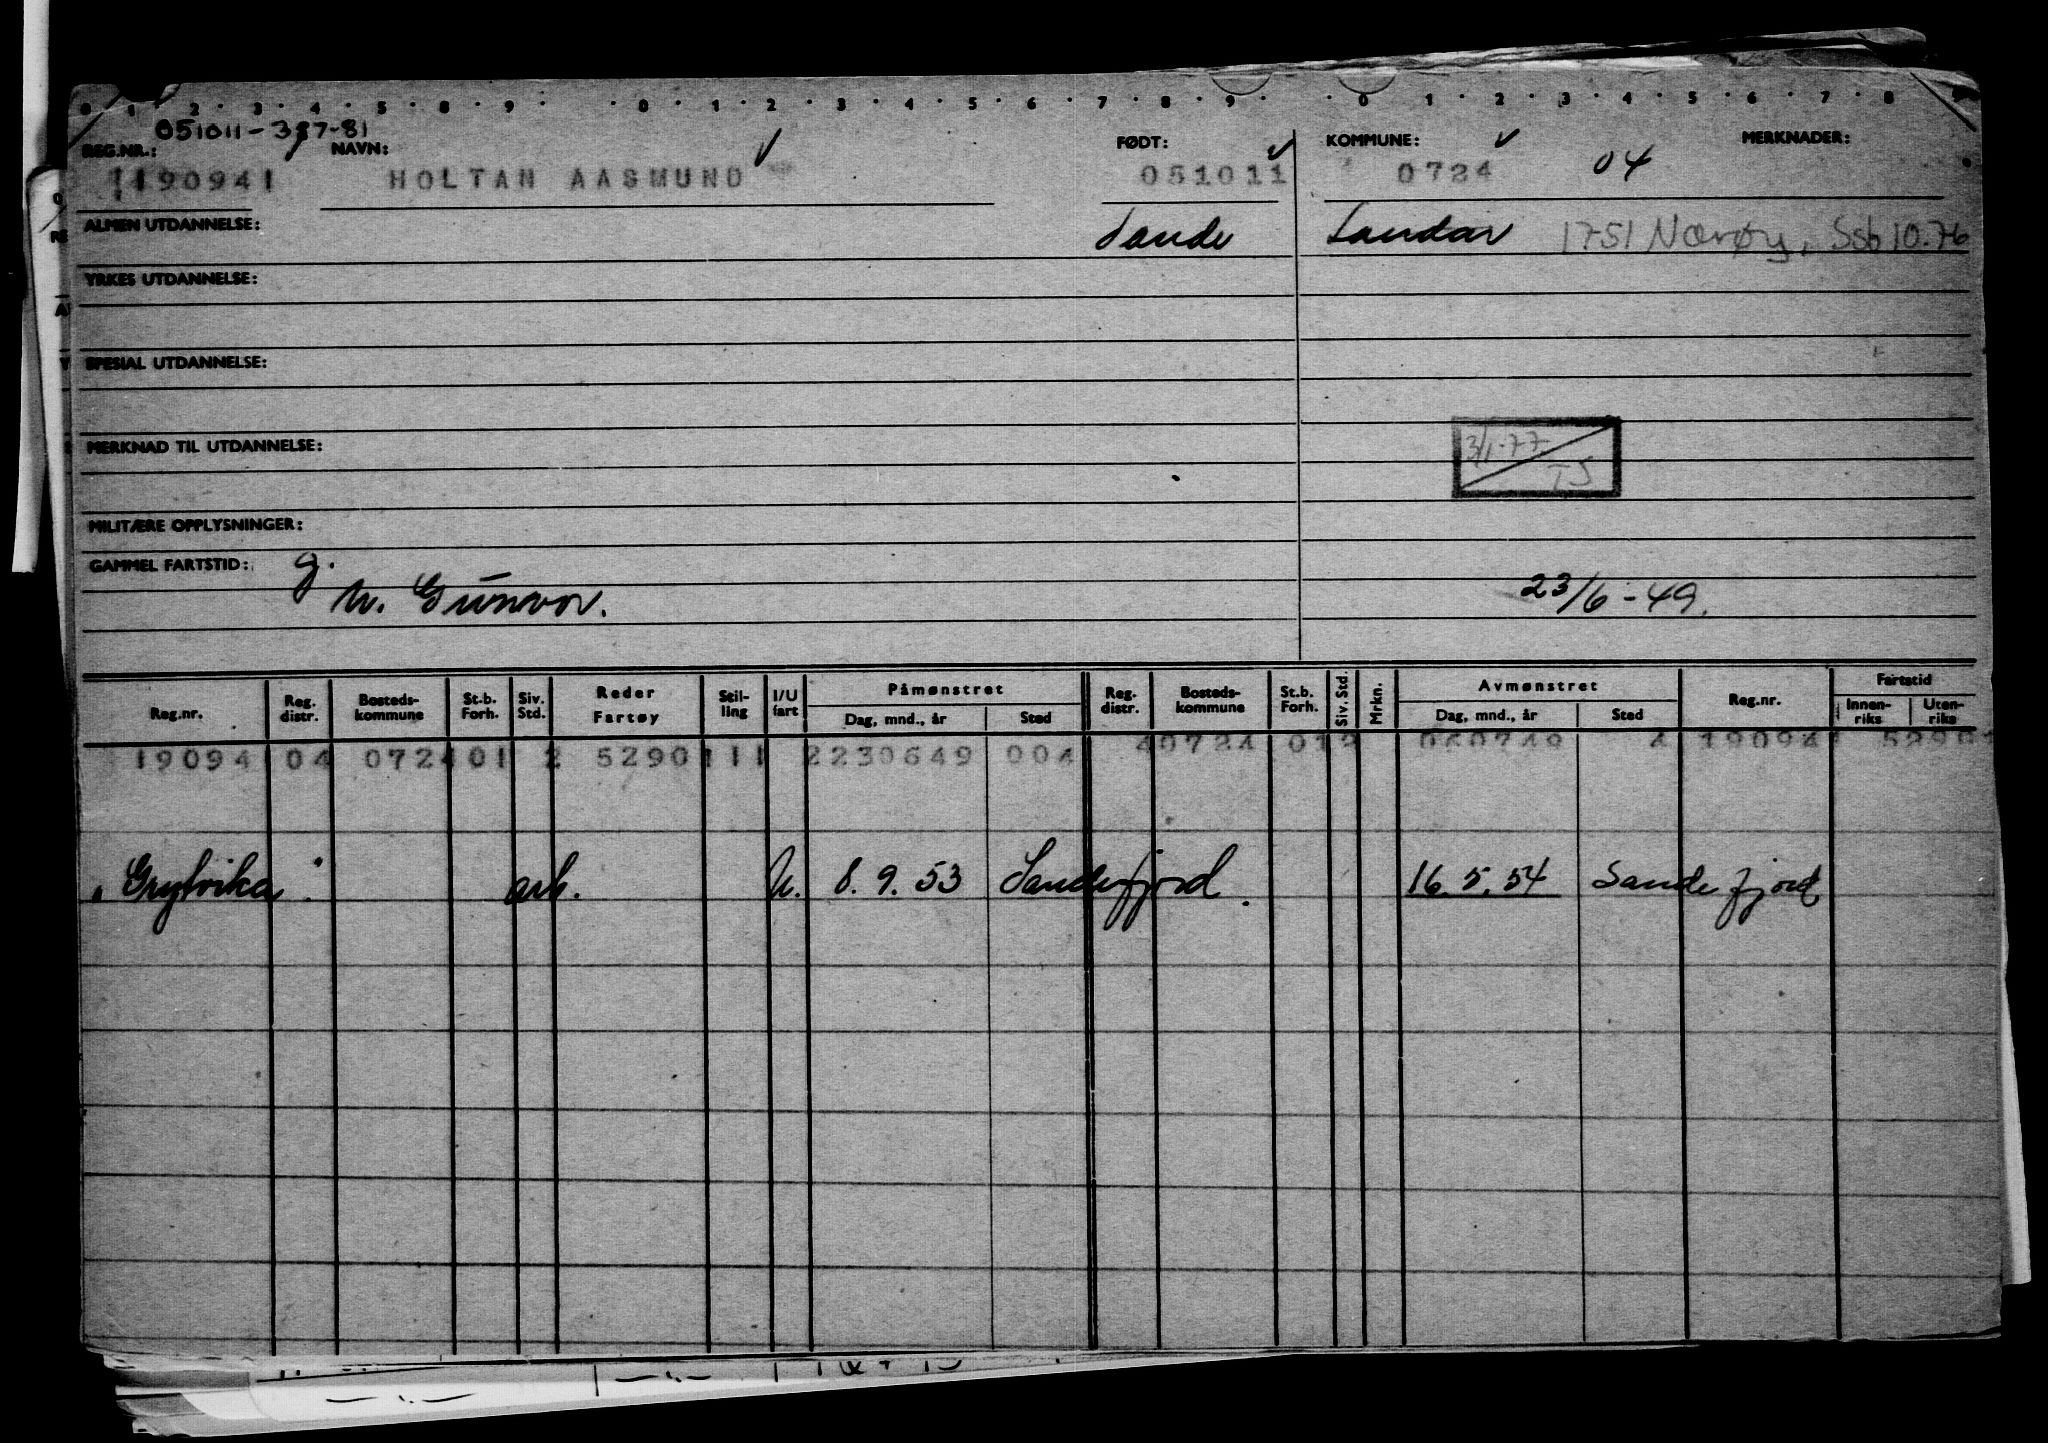 0 1 2 3 4 5 8 9 0 1 2 3 4 5 6 7 8 9 0 1 2 3 4 5 6 7 8
REG.NR.: 051011-387-81 NAVN: FØDT: KOMMUNE: MERKNADER:
190941 HOLTAN AASMUND 051011 0724 04
ALMEN UTDANNELSE: Sande Sandar 1751 Nærøy, Ssb 10.76
YRKES UTDANNELSE:
SPESIAL UTDANNELSE:
MERKNAD TIL UTDANNELSE: 3/1-77
TS
MILITÆRE OPPLYSNINGER:
GAMMEL FARTSTID: g.
m. Gunvor. 23/6-49.
Reg.nr. Reg. distr. Bosteds-kommune St.b. Forh. Siv. Std. Reder Fartøy Stil-ling I/U fart Påmønstret Dag, mnd., år Sted Reg. distr. Bosteds-kommune St.b. Forh. Siv. Std. Mrkn. Avmønstret Dag, mnd., år Sted Reg.nr. Fartstid Innen-riks Uten-riks
19094 04 072401 2 5290111 2230649 004 40724 012 060749 4 19094 5290
"Grytvika" arb. U. 8.9.53 Sandefjord. 16.5.54 Sandefjord